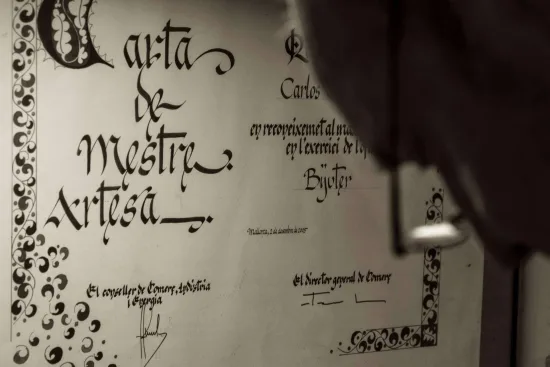 Carta
de
Mestre
Artesà
Carlos
en reconeixement al
en l'exercici de l'o
Bijoter
Mallorca, 2 de desembre de
El conseller de Comerç, Indústria
i Energia
El director general de Comerç